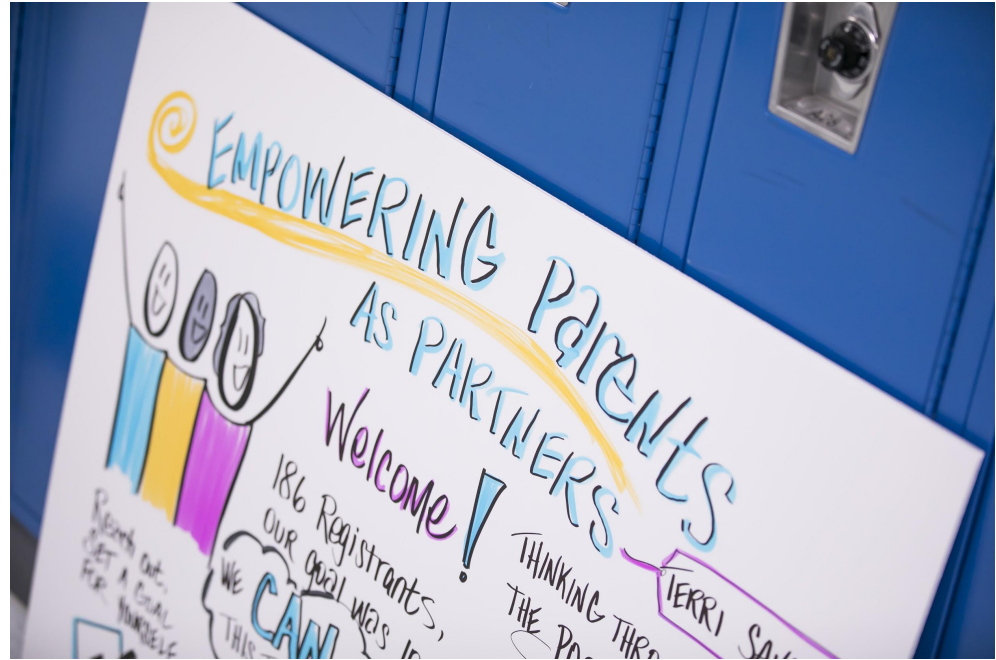 EMPOWERING Parents
AS PARTNERS
Welcome!
186 Registrants,
our goal was
Reach out,
SET A GOAL
FOR YOURSELF
WE CAN
THIS
THINKING
THE
TERRI